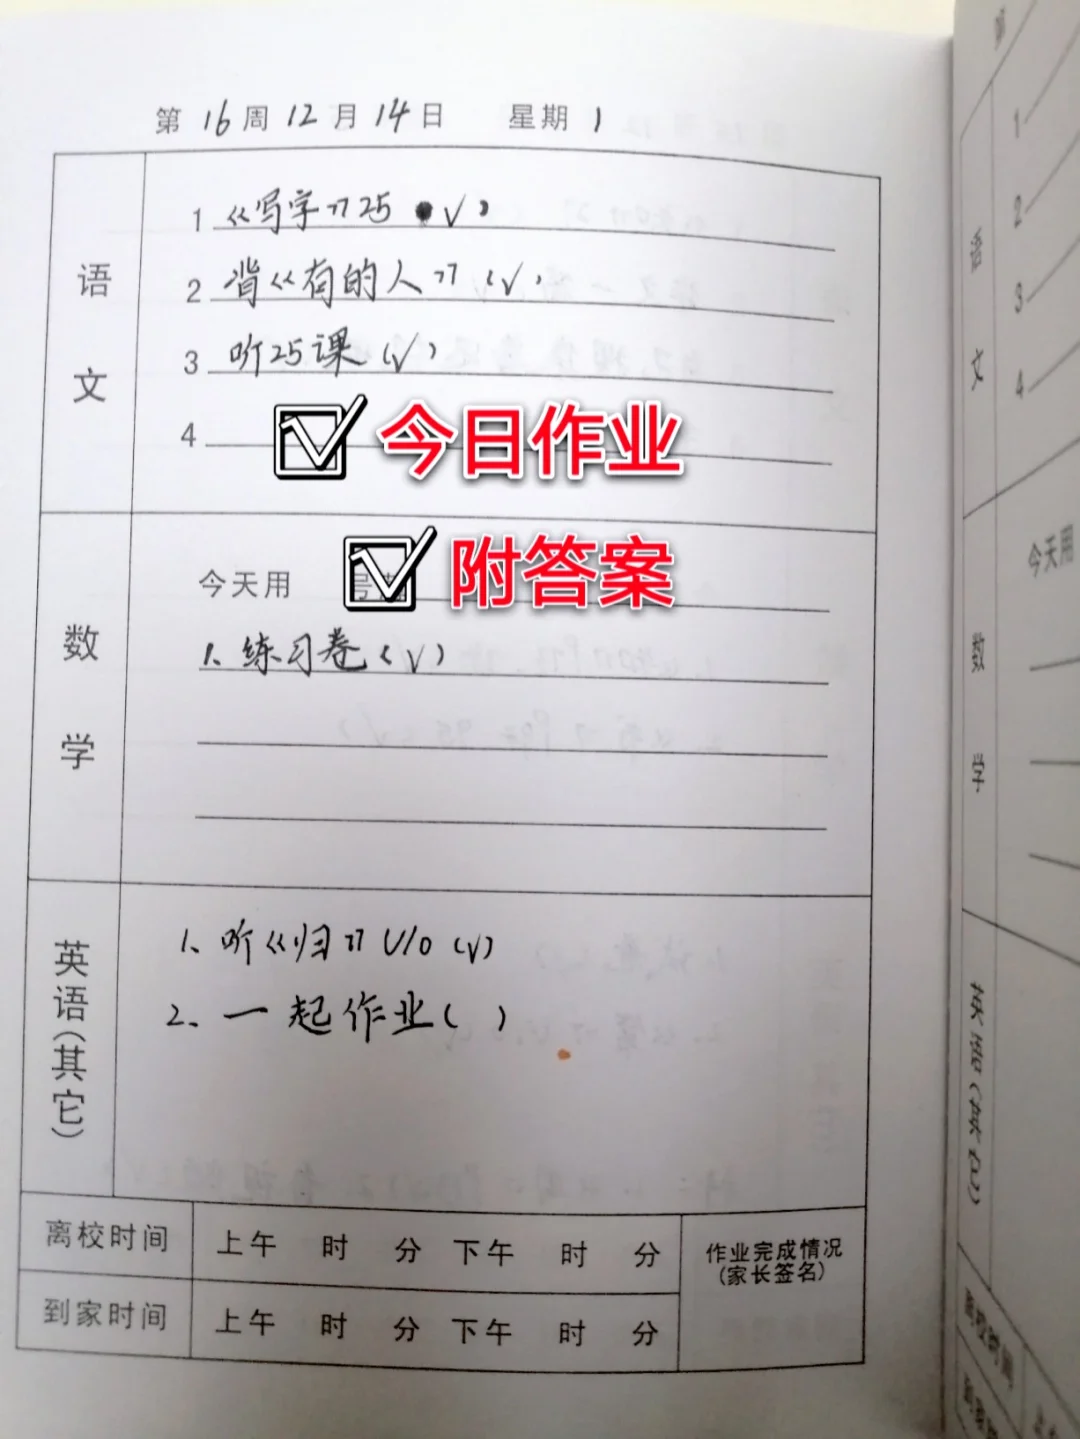 第16周12月14日 星期1
语文
1 《写字》25 (√)
2 背《有的人》(√)
3 听25课(√)
4
今日作业
附答案
数学
今天用 号
1、练习卷(√)
英语(其它)
1、听《归》U10(√)
2、一起作业( )
离校时间 上午 时 分 下午 时 分
到家时间 上午 时 分 下午 时 分
作业完成情况
(家长签名)
语文
1
2
3
4
今天用
数学
英语(其它)
离校时间